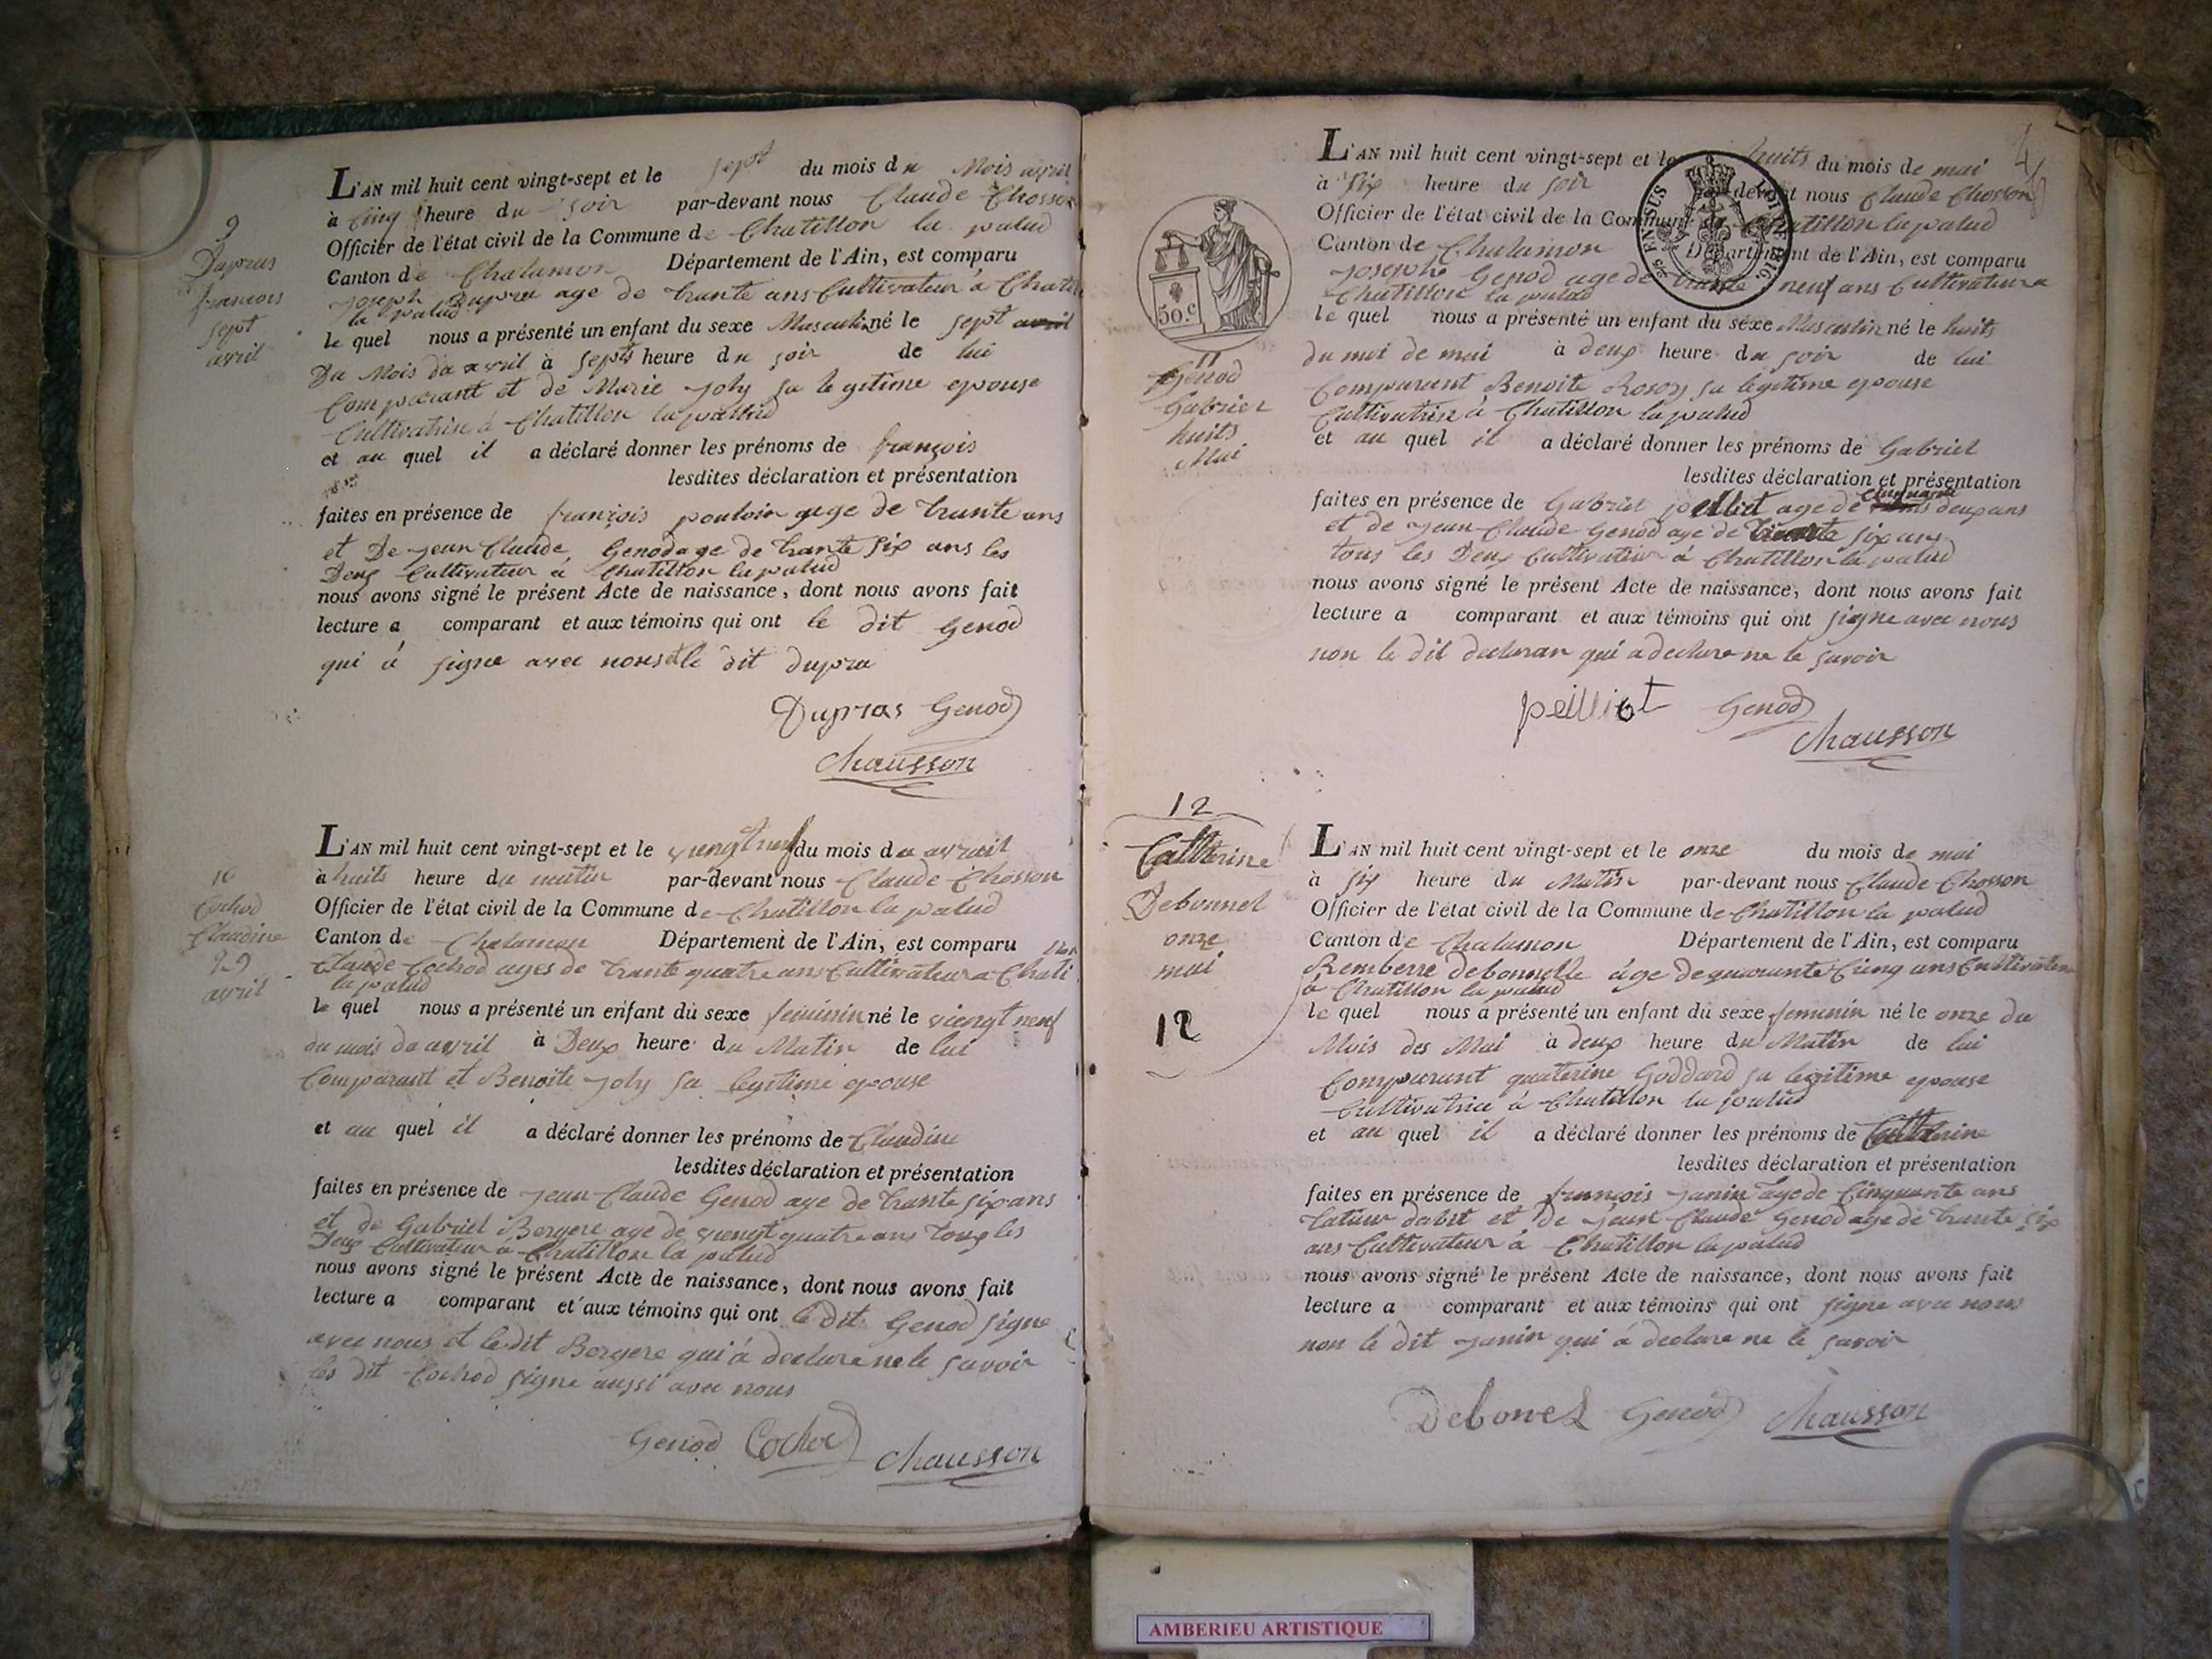 9
Dupras
francois
sept
avril
L'AN mil huit cent vingt-sept et le sept du mois du Mois avril
à Cinq heure du soir par-devant nous Claude Chosson
Officier de l'état civil de la Commune de Chatillon la palud
Canton de Chalamon Département de l'Ain, est comparu
Joseph Dupra age de trante ans Cultivateur à Chatillon
la palud
le quel nous a présenté un enfant du sexe Masculin né le sept avril
Du Mois da avril à septs heure du soir de lui
Comparant et de Marie Joly sa legitime epouse
Cultivatrise à Chatillon la palud
et au quel il a déclaré donner les prénoms de françois
lesdites déclaration et présentation
faites en présence de françois pouloin age de trante ans
et De Jean Claude Genod age de trante six ans les
Deux Cultivateur à Chatillon la palud
nous avons signé le présent Acte de naissance, dont nous avons fait
lecture a comparant et aux témoins qui ont le dit Genod
qui à signe avec nous et le dit dupra
Dupras Genod
Chausson
10
Cochod
Claudine
29
avril
L'AN mil huit cent vingt-sept et le viengt neuf du mois du avrail
à huits heure du matin par-devant nous Claude Chosson
Officier de l'état civil de la Commune de Chatillon la palud
Canton de Chalamon Département de l'Ain, est comparu
Claude Cochod ages de trante quatre ans Cultivateur a Chati
la palud
le quel nous a présenté un enfant du sexe feminin né le viengt neuf
du mois da avril à Deux heure du Matin de lui
Comparant et Benoite Joly sa legitime epouse
et au quel il a déclaré donner les prénoms de Claudine
lesdites déclaration et présentation
faites en présence de Jean Claude Genod age de trante six ans
et de Gabriel Bergere age de viengt quatre ans tous les
Deux Cultivateur à Chatillon la palud
nous avons signé le présent Acte de naissance, dont nous avons fait
lecture a comparant et aux témoins qui ont le Dit Genod signe
avec nous et le dit Bergere qui à declare ne le savoir
les dit Cochod signe aussi avec nous
Genod Cochod
Chausson
4
50.c
11
Genod
Gabriel
huits
Mai
L'AN mil huit cent vingt-sept et le huits du mois de mai
à six heure du soir par-devant nous Claude Chosson
Officier de l'état civil de la Commune de Chatillon la palud
Canton de Chalamon Département de l'Ain, est comparu
Joseph Genod age de trante neuf ans Cultivateur a
Chatillon la palud
le quel nous a présenté un enfant du sexe Masculin né le huits
du moi de mai à deux heure du soir de lui
Comparant Benoite Roson sa legitime epouse
Cultivatrise à Chatillon la palud
et au quel il a déclaré donner les prénoms de Gabriel
lesdites déclaration et présentation
faites en présence de Gabriel pelliet age de deux ans
et de Jean Claude Genod age de trante six ans
tous les Deux Cultivateur à Chatillon la palud
nous avons signé le présent Acte de naissance, dont nous avons fait
lecture a comparant et aux témoins qui ont signe avec nous
non le dit declaran qui à declare ne le savoir
peilliot Genod
Chausson
12
Catterine
Debonnel
onze
mai
12
L'AN mil huit cent vingt-sept et le onze du mois de mai
à six heure du Matin par-devant nous Claude Chosson
Officier de l'état civil de la Commune de Chatillon la palud
Canton de Chalamon Département de l'Ain, est comparu
Remberre debonnelle àge de quarante Cinq ans Cultivateur
a Chatillon la palud
le quel nous a présenté un enfant du sexe feminin né le onze du
Mois des Mai à deux heure du Matin de lui
Comparant quaterine Goddard sa legitime epouse
Cultivatrice à Chatillon la palud
et au quel il a déclaré donner les prénoms de Catterine
lesdites déclaration et présentation
faites en présence de françois Janin age de Cinquante ans
et de Jean Claude Genod age de trante six
ans Cultivateur à Chatillon la palud
nous avons signé le présent Acte de naissance, dont nous avons fait
lecture a comparant et aux témoins qui ont signe avec nous
non le dit Janin qui à declare ne le savoir
Debonel Genod Chausson
AMBERIEU ARTISTIQUE